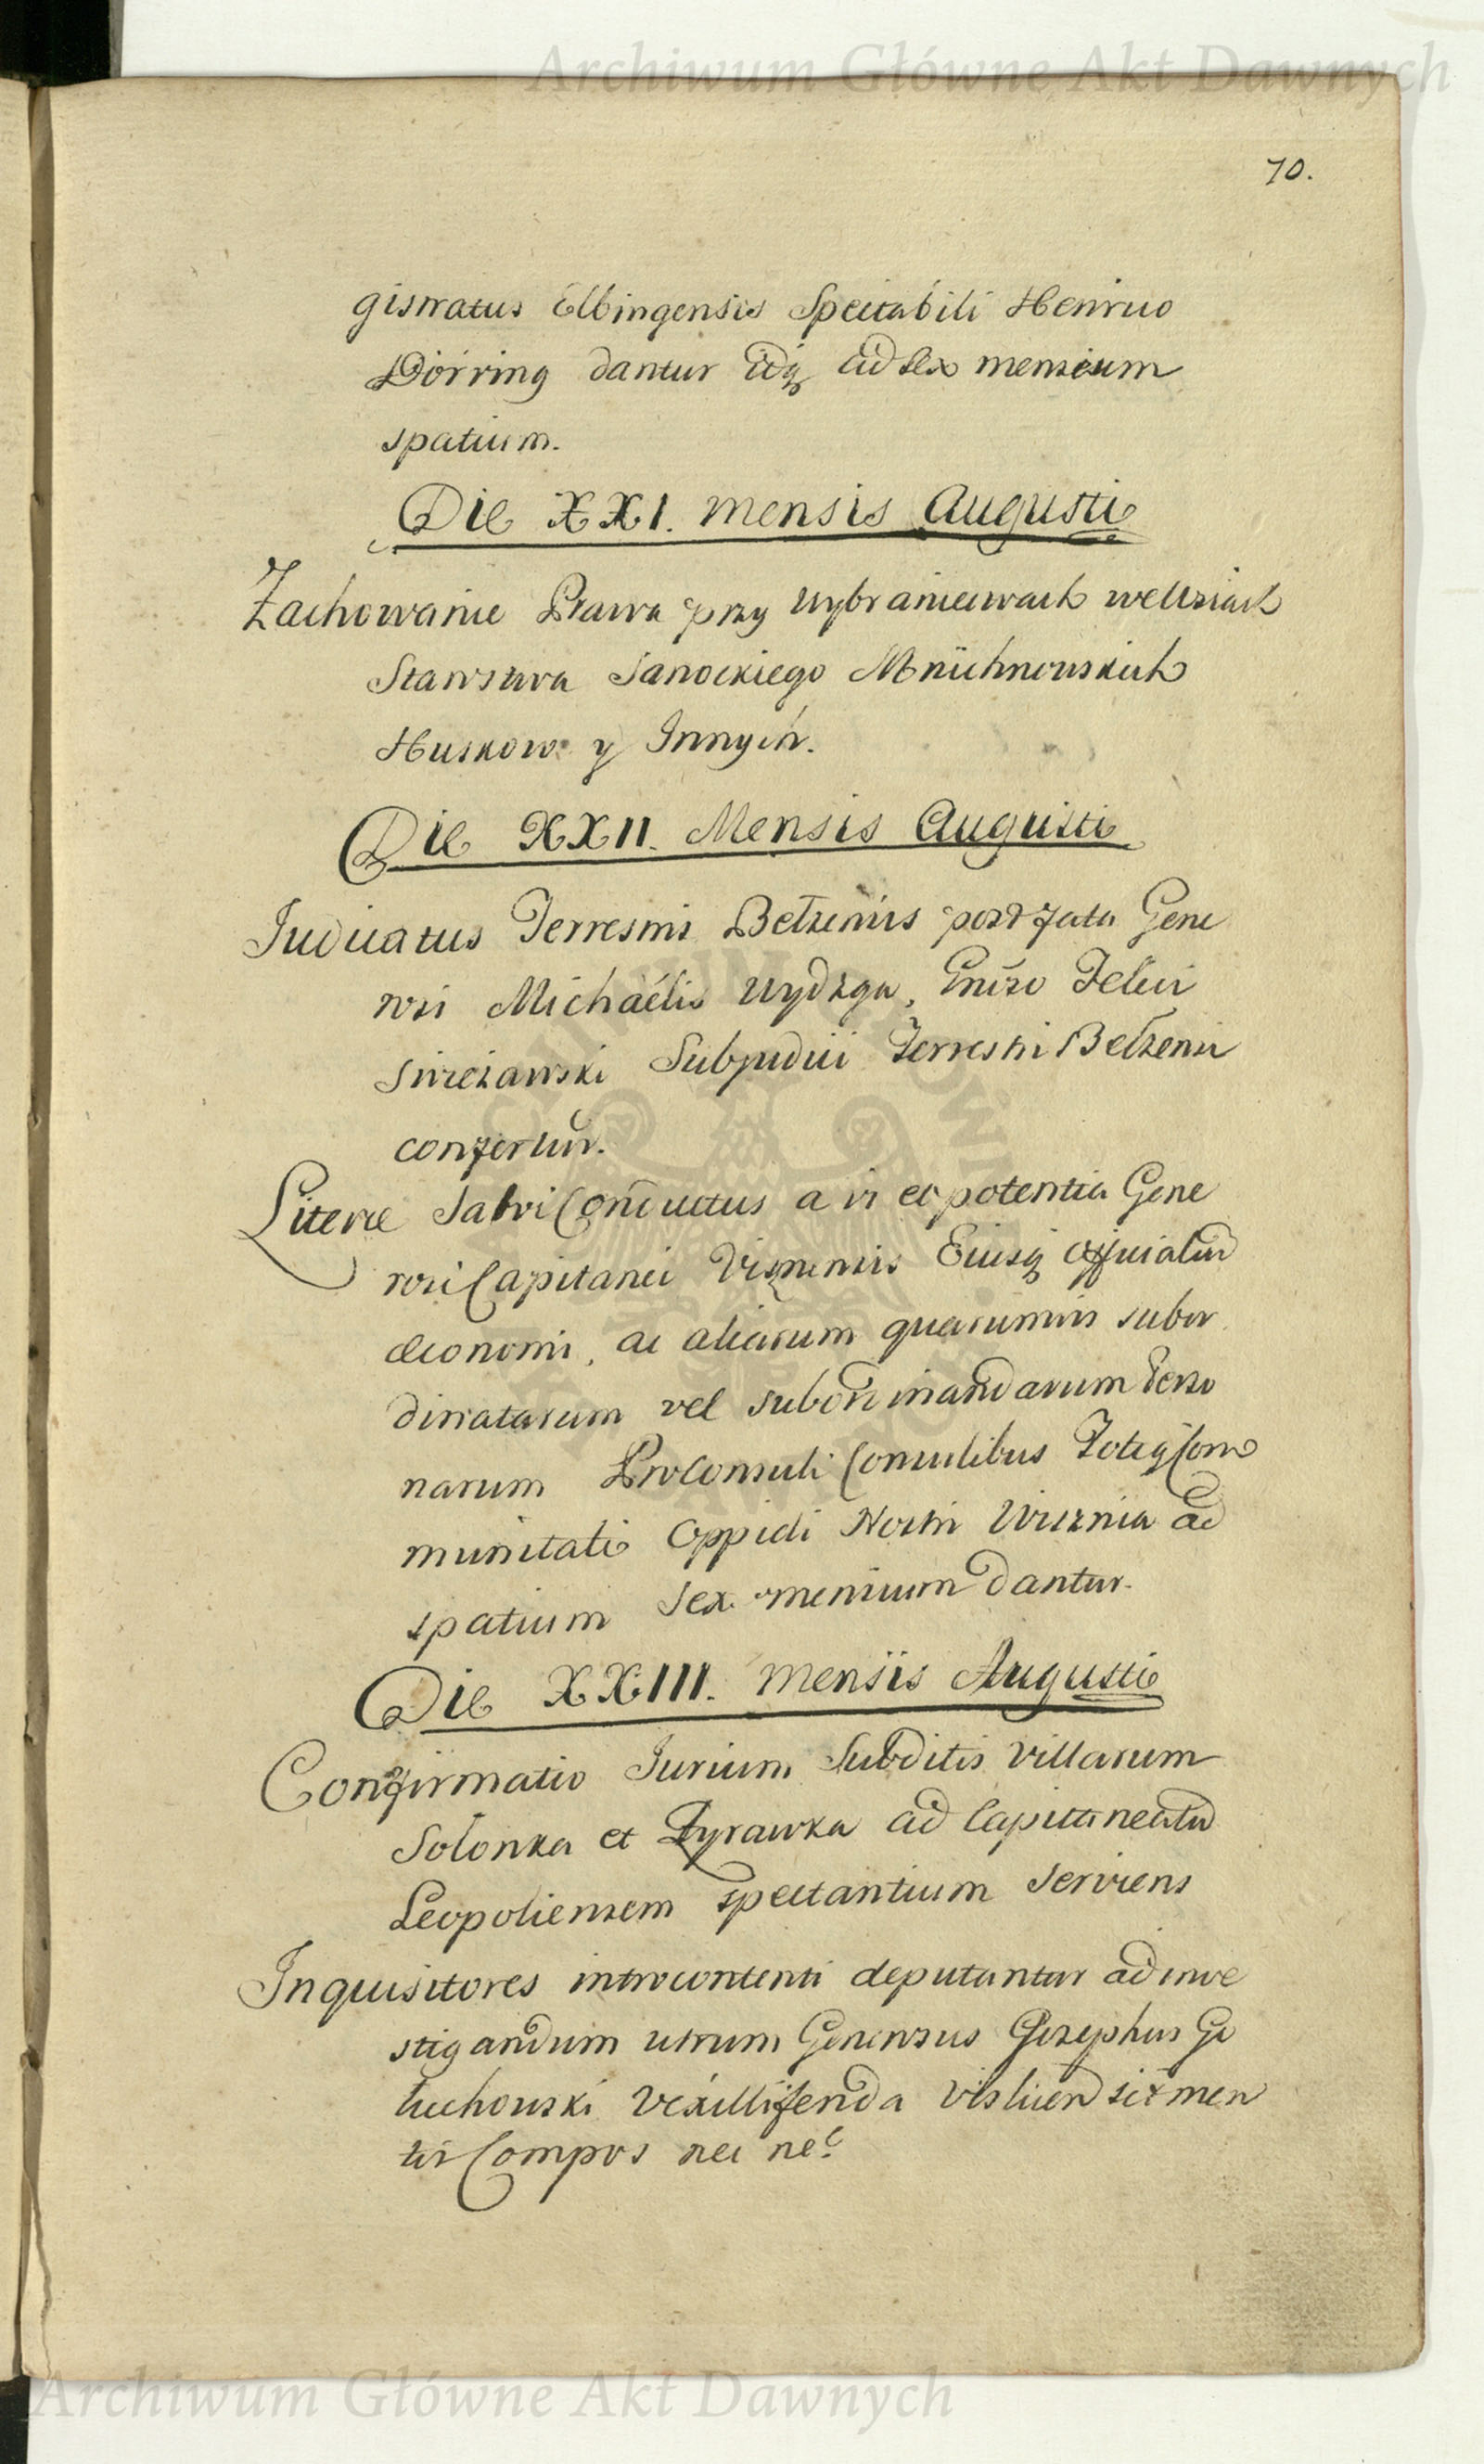 Archiwum Główne Akt Dawnych
70.
gistratus Elbingensis Spectabili Henrico
Dörring dantur idq ad sex mensium
spatium.
Die XXI. mensis Augusti
Zachowanie Prawa przy Wybraniectwach we Wsiach
Starostwa Sanockiego Mnichnowskich
Huskow y Innych.
Die XXII. Mensis Augusti
Judicatus Terrestris Betzensis post fata Gene
rosi Michaelis Wydzga, Gnroso Felici
Swiezawski Subjudici Terrestri Betzensi
confertur.
Literæ Salvi Conductus a vi et potentia Gene
rosi Capitanei Visnensis Eiusq officialium
œconomi, ac aliarum quarumvis subor
dinatarum vel subordinandarum Perso
narum Proconsuli Consulibus Totiq Com
munitati Oppidi Nostri Wisznia ad
spatium sex mensium dantur.
Die XXIII. mensis Augusti
Confirmatio Jurium Subditis Villarum
Sołonka et Zyrawka ad Capitaneatum
Leopoliensem spectantium serviens
Inquisitores introcontenti deputantur ad inve
stigandum utrum Generosus Josephus Go
łuchowski Vexilliferida Vislicen sit men
tis Compos nec ne?
Archiwum Główne Akt Dawnych